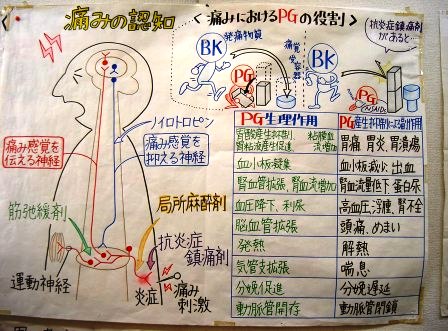 痛みの認知
痛み感覚を
伝える神経
ノイロトロピン
痛み感覚を
抑える神経
筋弛緩剤
局所麻酔剤
抗炎症
鎮痛剤
運動神経
炎症
痛み
刺激
<痛みにおけるPGの役割>
発痛物質
BK
PG
痛覚
受容器
BK
PG
NSAIDs
抗炎症鎮痛剤
があると
PG生理作用
胃酸産生抑制、
胃粘液産生促進
粘膜血
流増加
胃痛、胃炎、胃潰瘍
血小板凝集
血小板減少、出血
腎血管拡張、腎血流増加
腎血流量低下、蛋白尿
血圧降下、利尿
高血圧、浮腫、腎不全
脳血管拡張
頭痛、めまい
発熱
解熱
気管支拡張
喘息
分娩促進
分娩遅延
動脈管開存
動脈管閉鎖